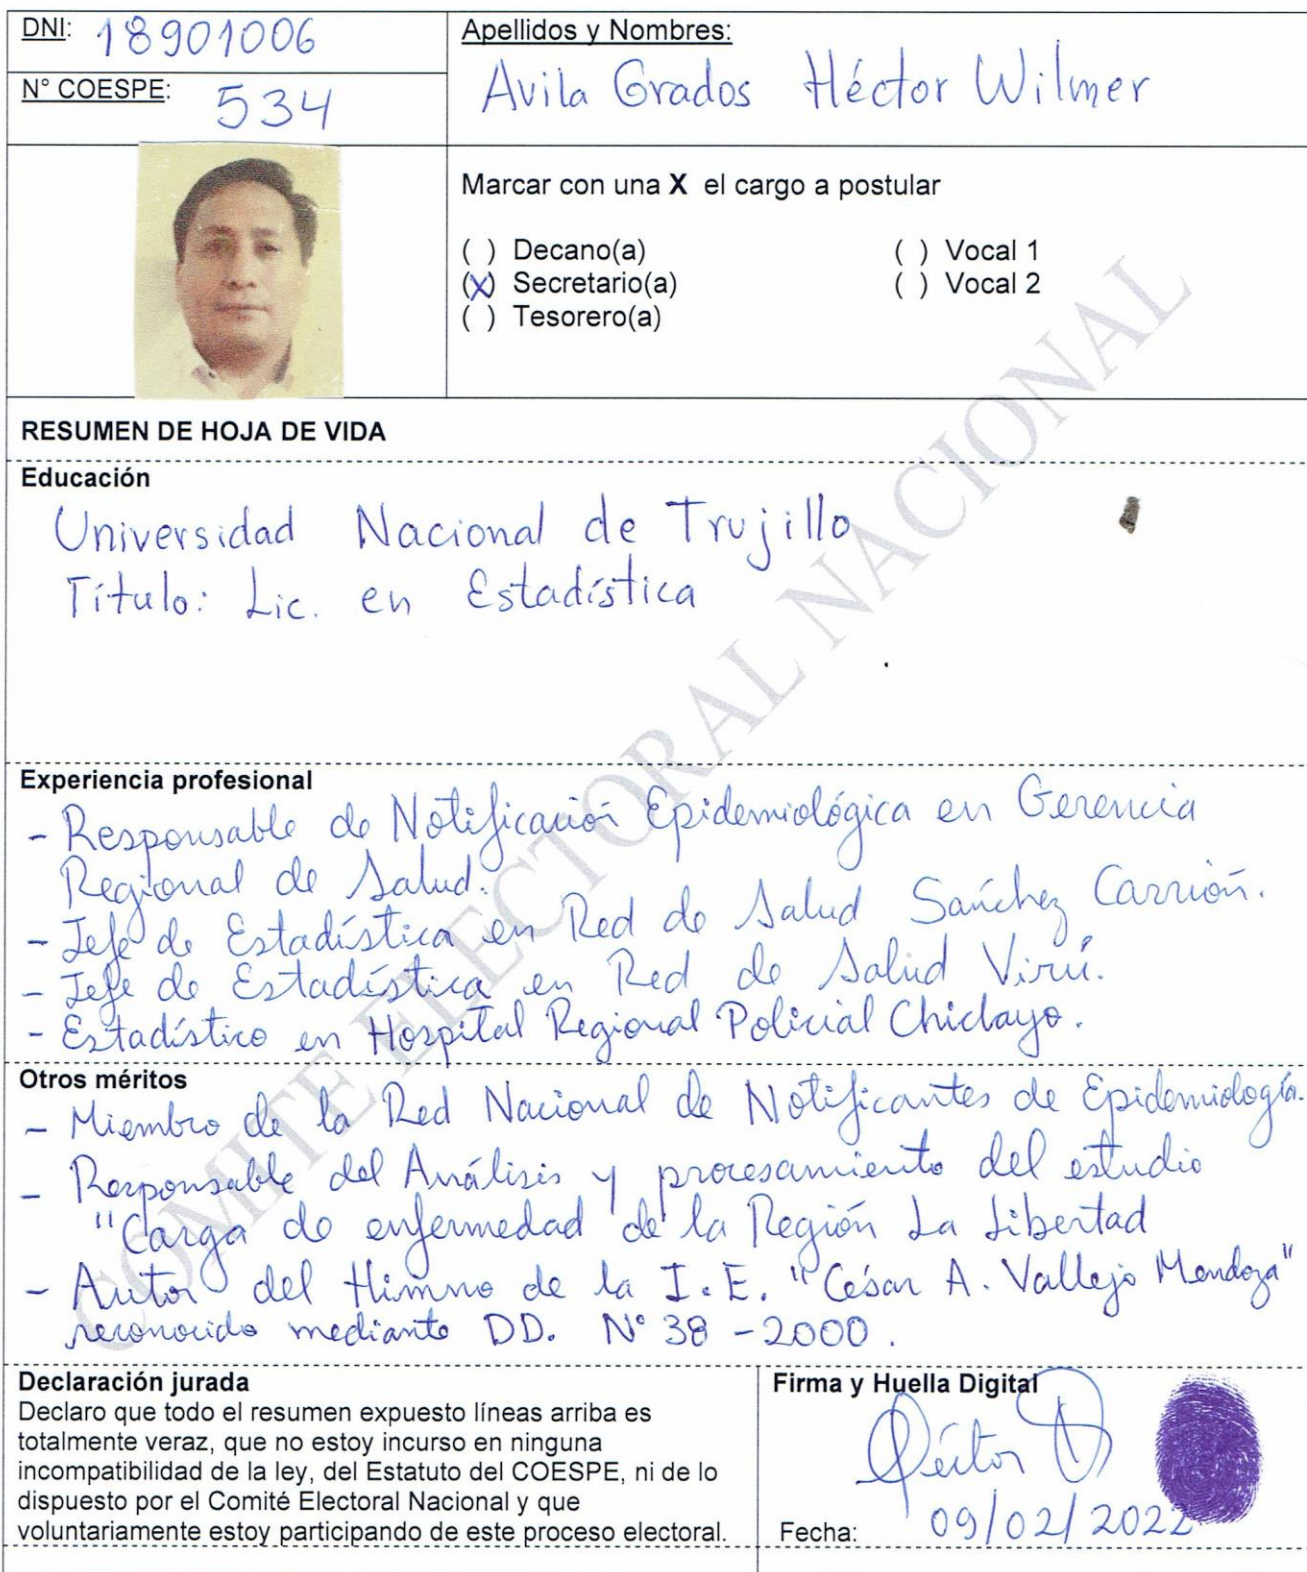 DNI: 18901006
Apellidos y Nombres:
Avila Grados Héctor Wilmer
N° COESPE: 534
Marcar con una X el cargo a postular
( ) Decano(a) ( ) Vocal 1
(X) Secretario(a) ( ) Vocal 2
( ) Tesorero(a)
RESUMEN DE HOJA DE VIDA
Educación
Universidad Nacional de Trujillo
Título: Lic. en Estadística
Experiencia profesional
- Responsable de Notificación Epidemiológica en Gerencia
Regional de Salud.
- Jefe de Estadística en Red de Salud Sánchez Carrión.
- Jefe de Estadística en Red de Salud Virú.
- Estadístico en Hospital Regional Policial Chiclayo.
Otros méritos
- Miembro de la Red Nacional de Notificantes de Epidemiología.
- Responsable del Análisis y procesamiento del estudio
"Carga de enfermedad de la Región La Libertad
- Autor del Himno de la I.E. "César A. Vallejo Mendoza"
reconocido mediante DD. N° 38 - 2000.
Declaración jurada
Declaro que todo el resumen expuesto líneas arriba es
totalmente veraz, que no estoy incurso en ninguna
incompatibilidad de la ley, del Estatuto del COESPE, ni de lo
dispuesto por el Comité Electoral Nacional y que
voluntariamente estoy participando de este proceso electoral.
Firma y Huella Digital
Héctor
Fecha: 09/02/2022
COMITE ELECTORAL NACIONAL